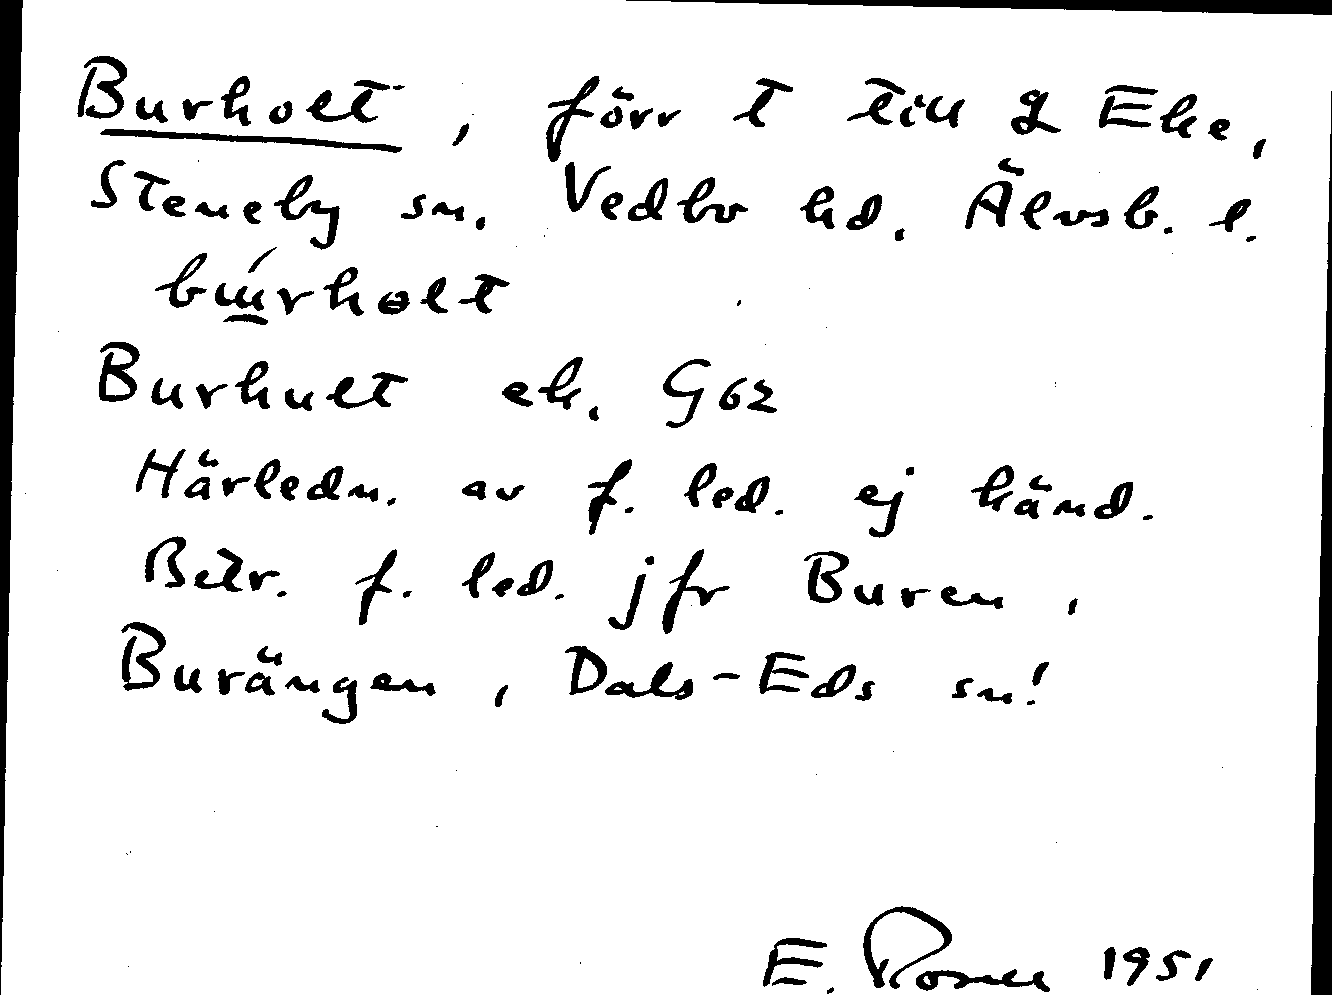 Burholt, förr t till g Eke,
Steneby sn. Vedbo hd. Älvsb. l.
búrholt
Burhult ek. G62
Härledn. av f. led. ej känd.
Betr. f. led. jfr Buren,
Burängen, Dals-Eds sn!
E. 1951